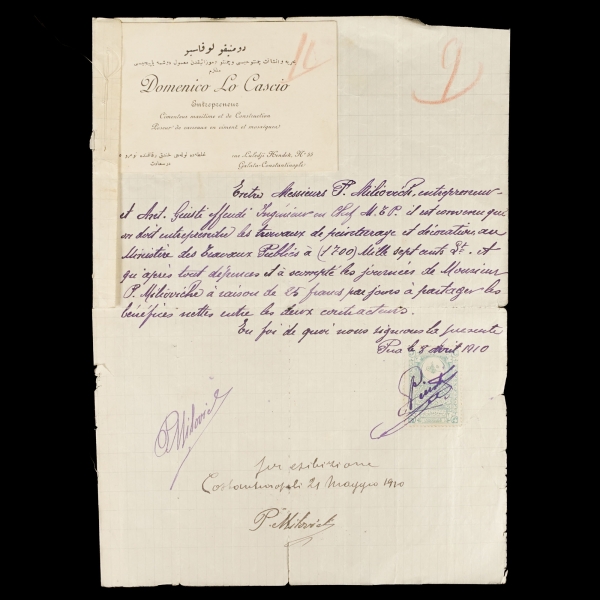 دومنيقو لوقاسيو
Domenico Lo Cascio
Entrepreneur
Ciments maritime et de Construction
en ciment et mosaiques
rue Luledji Hendek, Nº 
Galata-Constantinople
9
Entre Messieurs P. Miliovich, entrepreneur
et Ant. Giusti effendi Ingénieur en Chef M.T.P. il est convenu qui
on doit entreprendre les travaux de peinturage et décoration au
Ministère des Travaux Publics à (1700) Mille sept cents Lt. et
qu'après tout depences et à scompté les journées de Monsieur
P. Miliovich à raison de 25 francs par jours à partager les
bénéfices nettes entre les deux contracteurs.
En foi de quoi nous signons la presente
Pera le 8 Avril 1910
P. Milovich
per esibizione
Costantinopoli 21 Maggio 1910
P. Milovich